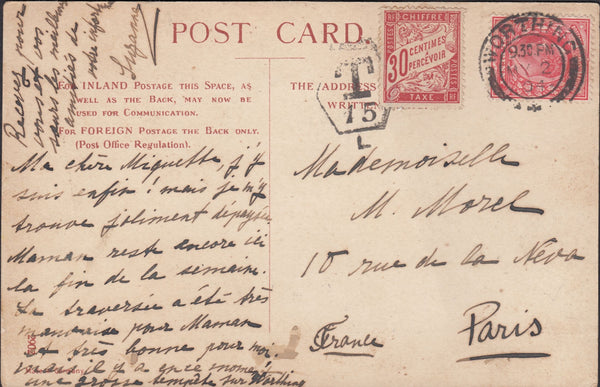 POST CARD.
For INLAND Postage this Space, as
well as the Back, may now be
used for Communication.
For FOREIGN Postage the Back only.
(Post Office Regulation).
THE ADDRESS
WRITTEN
Ma chère Miguette, j'y
suis enfin! mais je m'y
trouve joliment dépaysée.
Maman reste encore ici
la fin de la semaine.
La traversée a été très
mauvaise pour Maman
et très bonne pour moi.
mais il y a en ce moment
une grosse tempête sur Worthing
Recevez pour
vous et vos
sœurs les meilleures
amitiés de
votre
Suzanne
Mademoiselle
M. Morel
10 rue de la Néva
Paris
France
T
75
L
CHIFFRE
30 CENTIMES
À
PERCEVOIR
TAXE
POSTES
RF
WORTHING
930 PM
MY 2